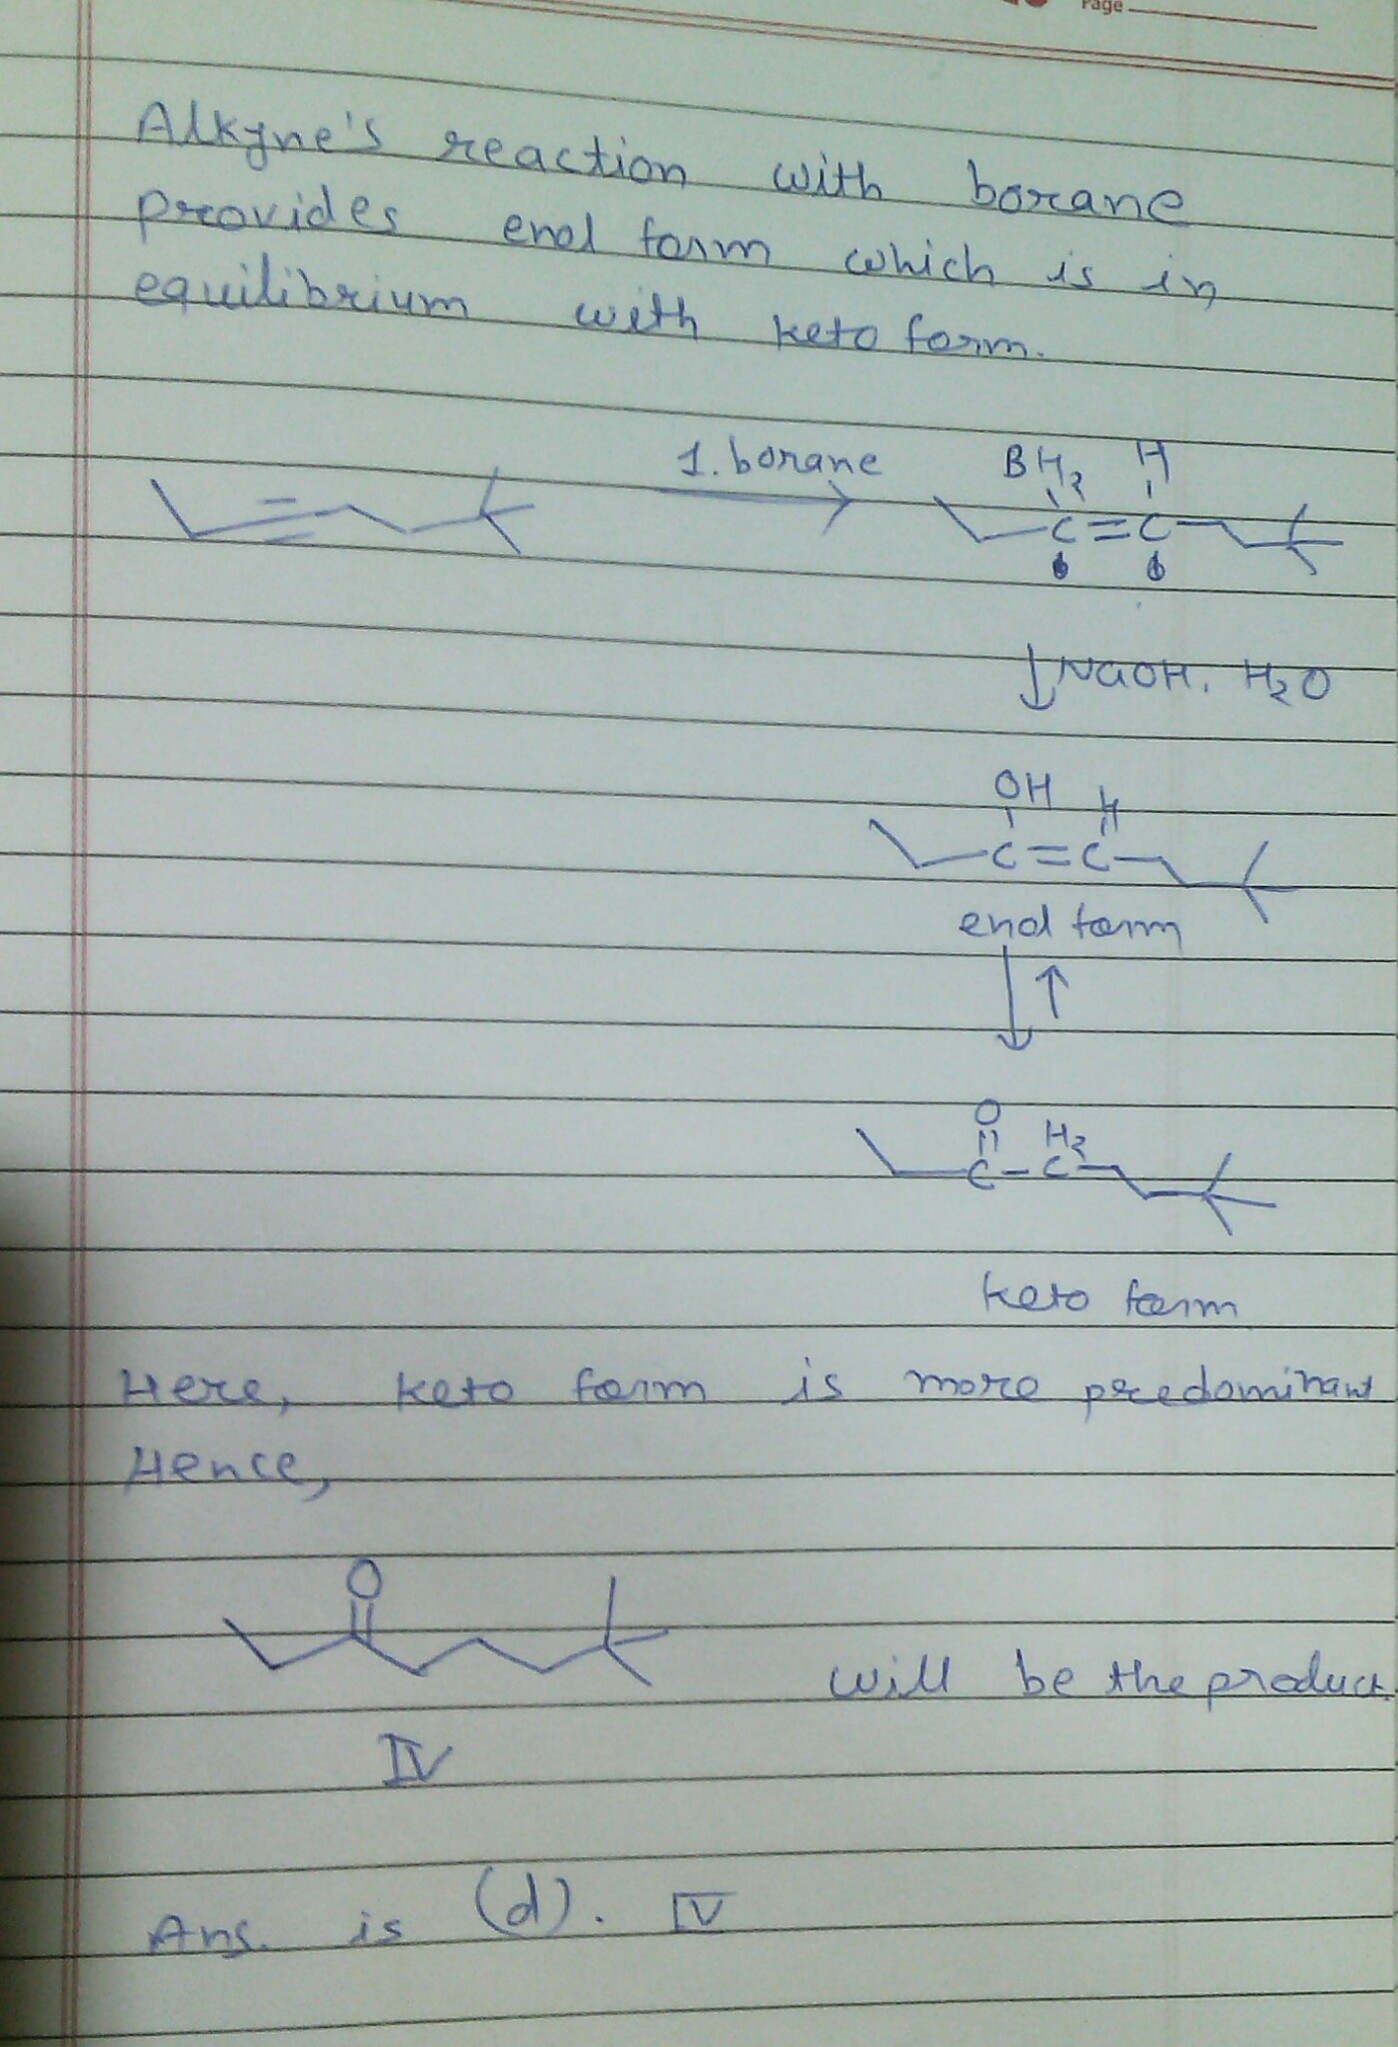 Page
Alkyne's reaction with borane
provides enol form which is in
equilibrium with keto form.
1. borane
BH2 H
C=C
NaOH, H2O
OH H
C=C
enol form
O H2
C-C
keto form
Here, keto form is more predominant
Hence,
O
will be the product
IV
Ans. is (d). IV